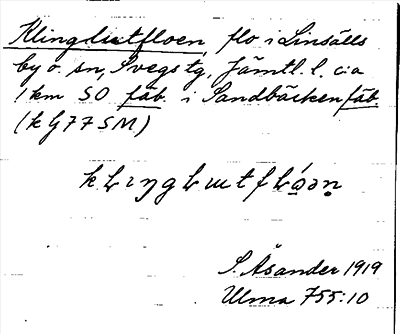 Klinglutfloen, flo i Linsälls
by o. sn, Svegs tg. Jämtl. l. c:a
1 km SO fäb. i Sandbäcken fäb.
(k G77SM)
S. Åsander 1919
Ulma 755:10